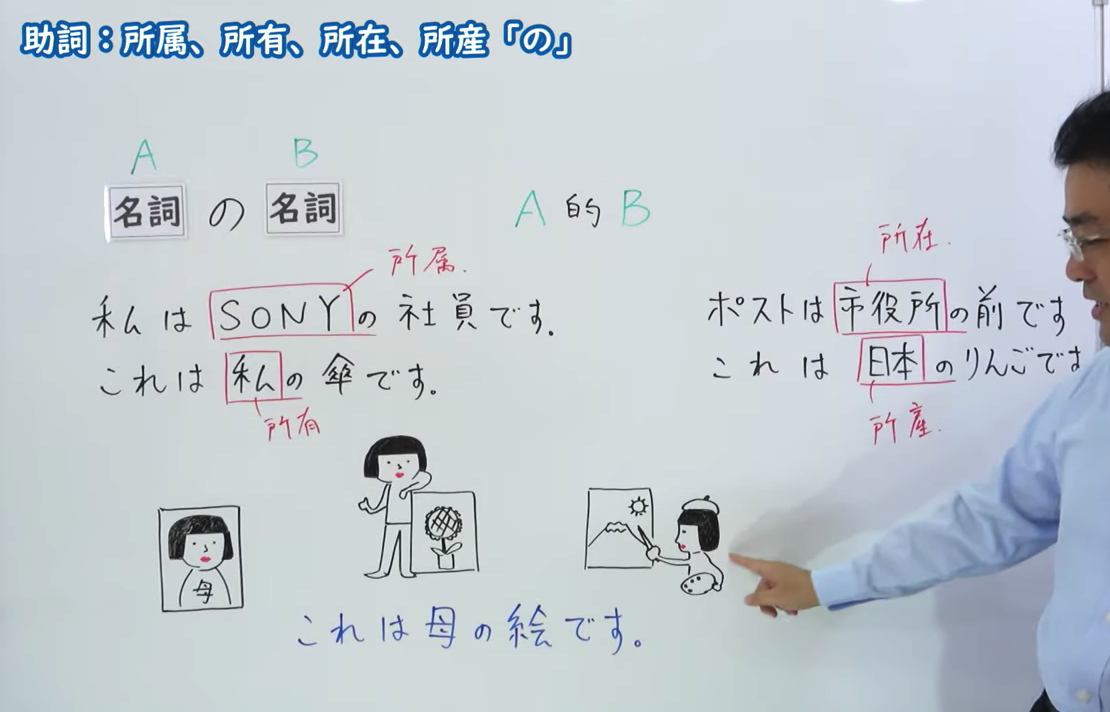 助詞：所属、所有、所在、所産「の」
A B
名詞 の 名詞
A 的 B
所属.
私は SONYの 社員です.
これは 私の 傘です。
所有
所在.
ポストは市役所の前です
これは 日本のりんごでは
所産.
母
これは母の絵です。